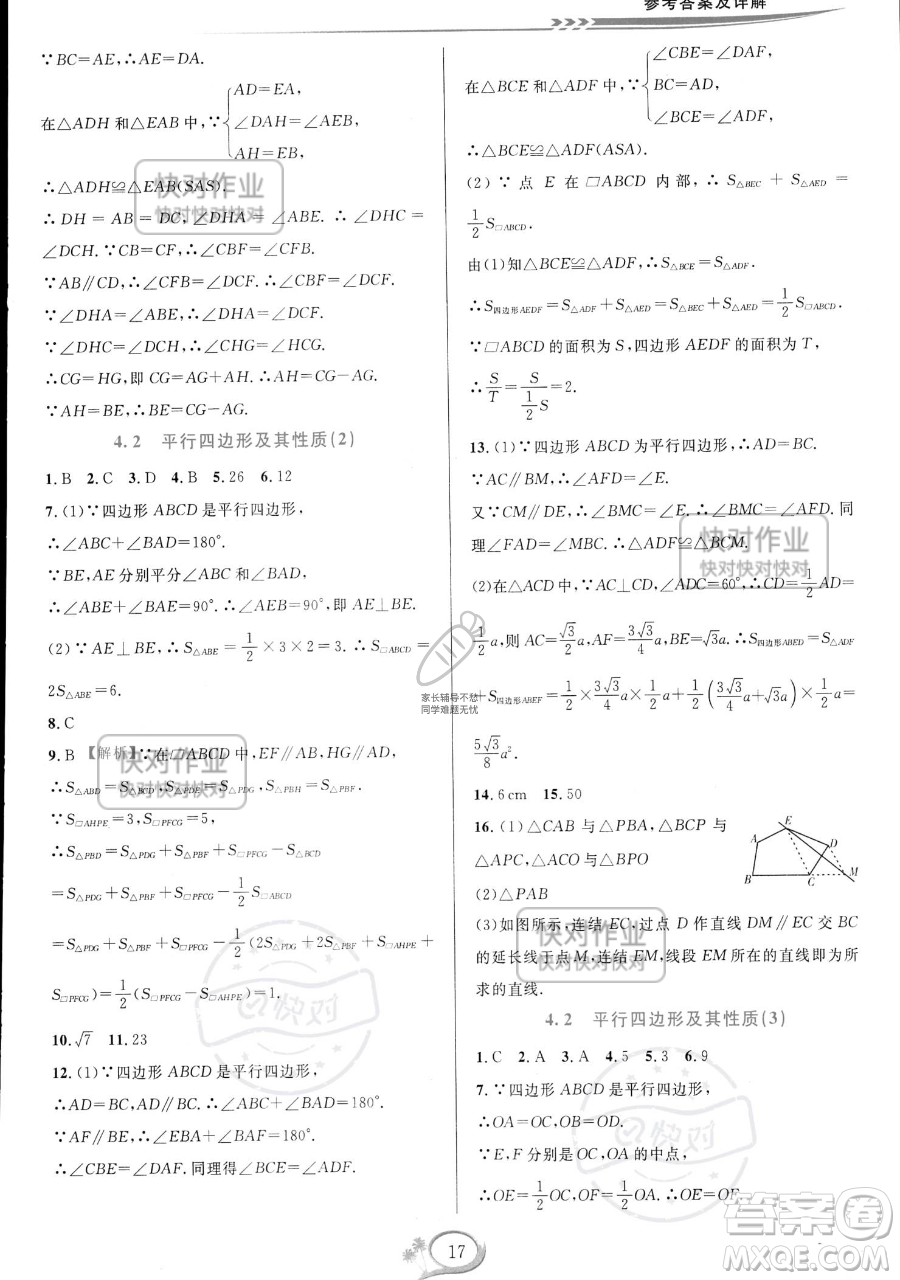 参考答案及详解
∵BC=AE,∴AE=DA.
在△ADH 和△EAB 中,∵{AD=EA,
∠DAH=∠AEB,
AH=EB,
∴△ADH≌△EAB(SAS).
∴DH=AB=DC,∠DHA=∠ABE.∴∠DHC=
∠DCH.∵CB=CF,∴∠CBF=∠CFB.
∵AB∥CD,∴∠CFB=∠ABF=∠CBF.
∵∠DHA=∠ABE,∴∠DHA=∠DCF.
∵∠DHC=∠DCH,∴∠CHG=∠HCG.
∴CG=HG,即 CG=AG+AH.
∵AH=BE,∴BE=CG-AG.
4.2 平行四边形及其性质(2)
1.B 2.C 3.D 4.B 5.26 6.12
7.(1)∵四边形 ABCD 是平行四边形,
∴∠ABC+∠BAD=180°.
∵BE,AE 分别平分∠ABC 和∠BAD,
∴∠ABE+∠BAE=90°.∴∠AEB=90°,即 AE⊥BE.
(2)∵AE⊥BE,∴S△ABE=1/2×3×2=3.∴S□ABCD=
2S△ABE=6.
8.C
9.B 【解析】∵在□ABCD 中,EF∥AB,HG∥AD,
∴S△ABD=S△BCD,S△PDE=S△PDG,S△PBH=S△PBF.
∵S□AHPE=3,S□PFCG=5,
∴S△PBD=S△PDG+S△PBF+S□PFCG-S△BCD
=S△PDG+S△PBF+S□PFCG-1/2S□ABCD
=S△PDG+S△PBF+S□PFCG-1/2(2S△PDG+2S△PBF+S□AHPE+
S□PFCG)=1/2(S□PFCG-S□AHPE)=1.
10.√7 11.23
12.(1)∵四边形 ABCD 是平行四边形,
∴AD=BC,AD∥BC.∴∠ABC+∠BAD=180°.
∵AF∥BE,∴∠EBA+∠BAF=180°.
∴∠CBE=∠DAF.同理得∠BCE=∠ADF.
在△BCE 和△ADF 中,∵{∠CBE=∠DAF,
BC=AD,
∠BCE=∠ADF,
∴△BCE≌△ADF(ASA).
(2)∵点 E 在□ABCD 内部,∴S△BEC+S△AED=
1/2S□ABCD.
由(1)知△BCE≌△ADF,∴S△BCE=S△ADF.
∴S四边形AEDF=S△ADF+S△AED=S△BEC+S△AED=1/2S□ABCD.
∵□ABCD 的面积为 S,四边形 AEDF 的面积为 T,
∴S/T=S/(1/2S)=2.
13.(1)∵四边形 ABCD 为平行四边形,∴AD=BC.
∵AC∥BM,∴∠AFD=∠E.
又∵CM∥DE,∴∠BMC=∠E.∴∠BMC=∠AFD.同
理∠FAD=∠MBC.∴△AFD≌△BCM.
(2)在△ACD 中,∵AC⊥CD,∠ADC=60°,∴CD=1/2AD=
1/2a,则 AC=√3/2a,AF=3√3/4a,BE=√3a.∴S四边形ABED=S△ADF
+S四边形ABEF=1/2×3√3/4a×1/2a+1/2(3√3/4a+√3a)×1/2a=
5√3/8a².
14.6 cm 15.50
16.(1)△CAB 与△PBA,△BCP 与
△APC,△ACO 与△BPO
(2)△PAB
(3)如图所示,连结 EC,过点 D 作直线 DM∥EC 交 BC
的延长线于点 M,连结 EM,线段 EM 所在的直线即为所
求的直线.
A B C D E M
4.2 平行四边形及其性质(3)
1.C 2.A 3.A 4.5 5.3 6.9
7.∵四边形 ABCD 是平行四边形,
∴OA=OC,OB=OD.
∵E,F 分别是 OC,OA 的中点,
∴OE=1/2OC,OF=1/2OA.∴OE=OF.
17
快对作业
快对快对快对
快对作业
快对快对快对
快对作业
快对快对快对
快对作业
快对快对快对
家长辅导不愁
同学难题无忧
快对
快对
答案卷
MXQE.COM